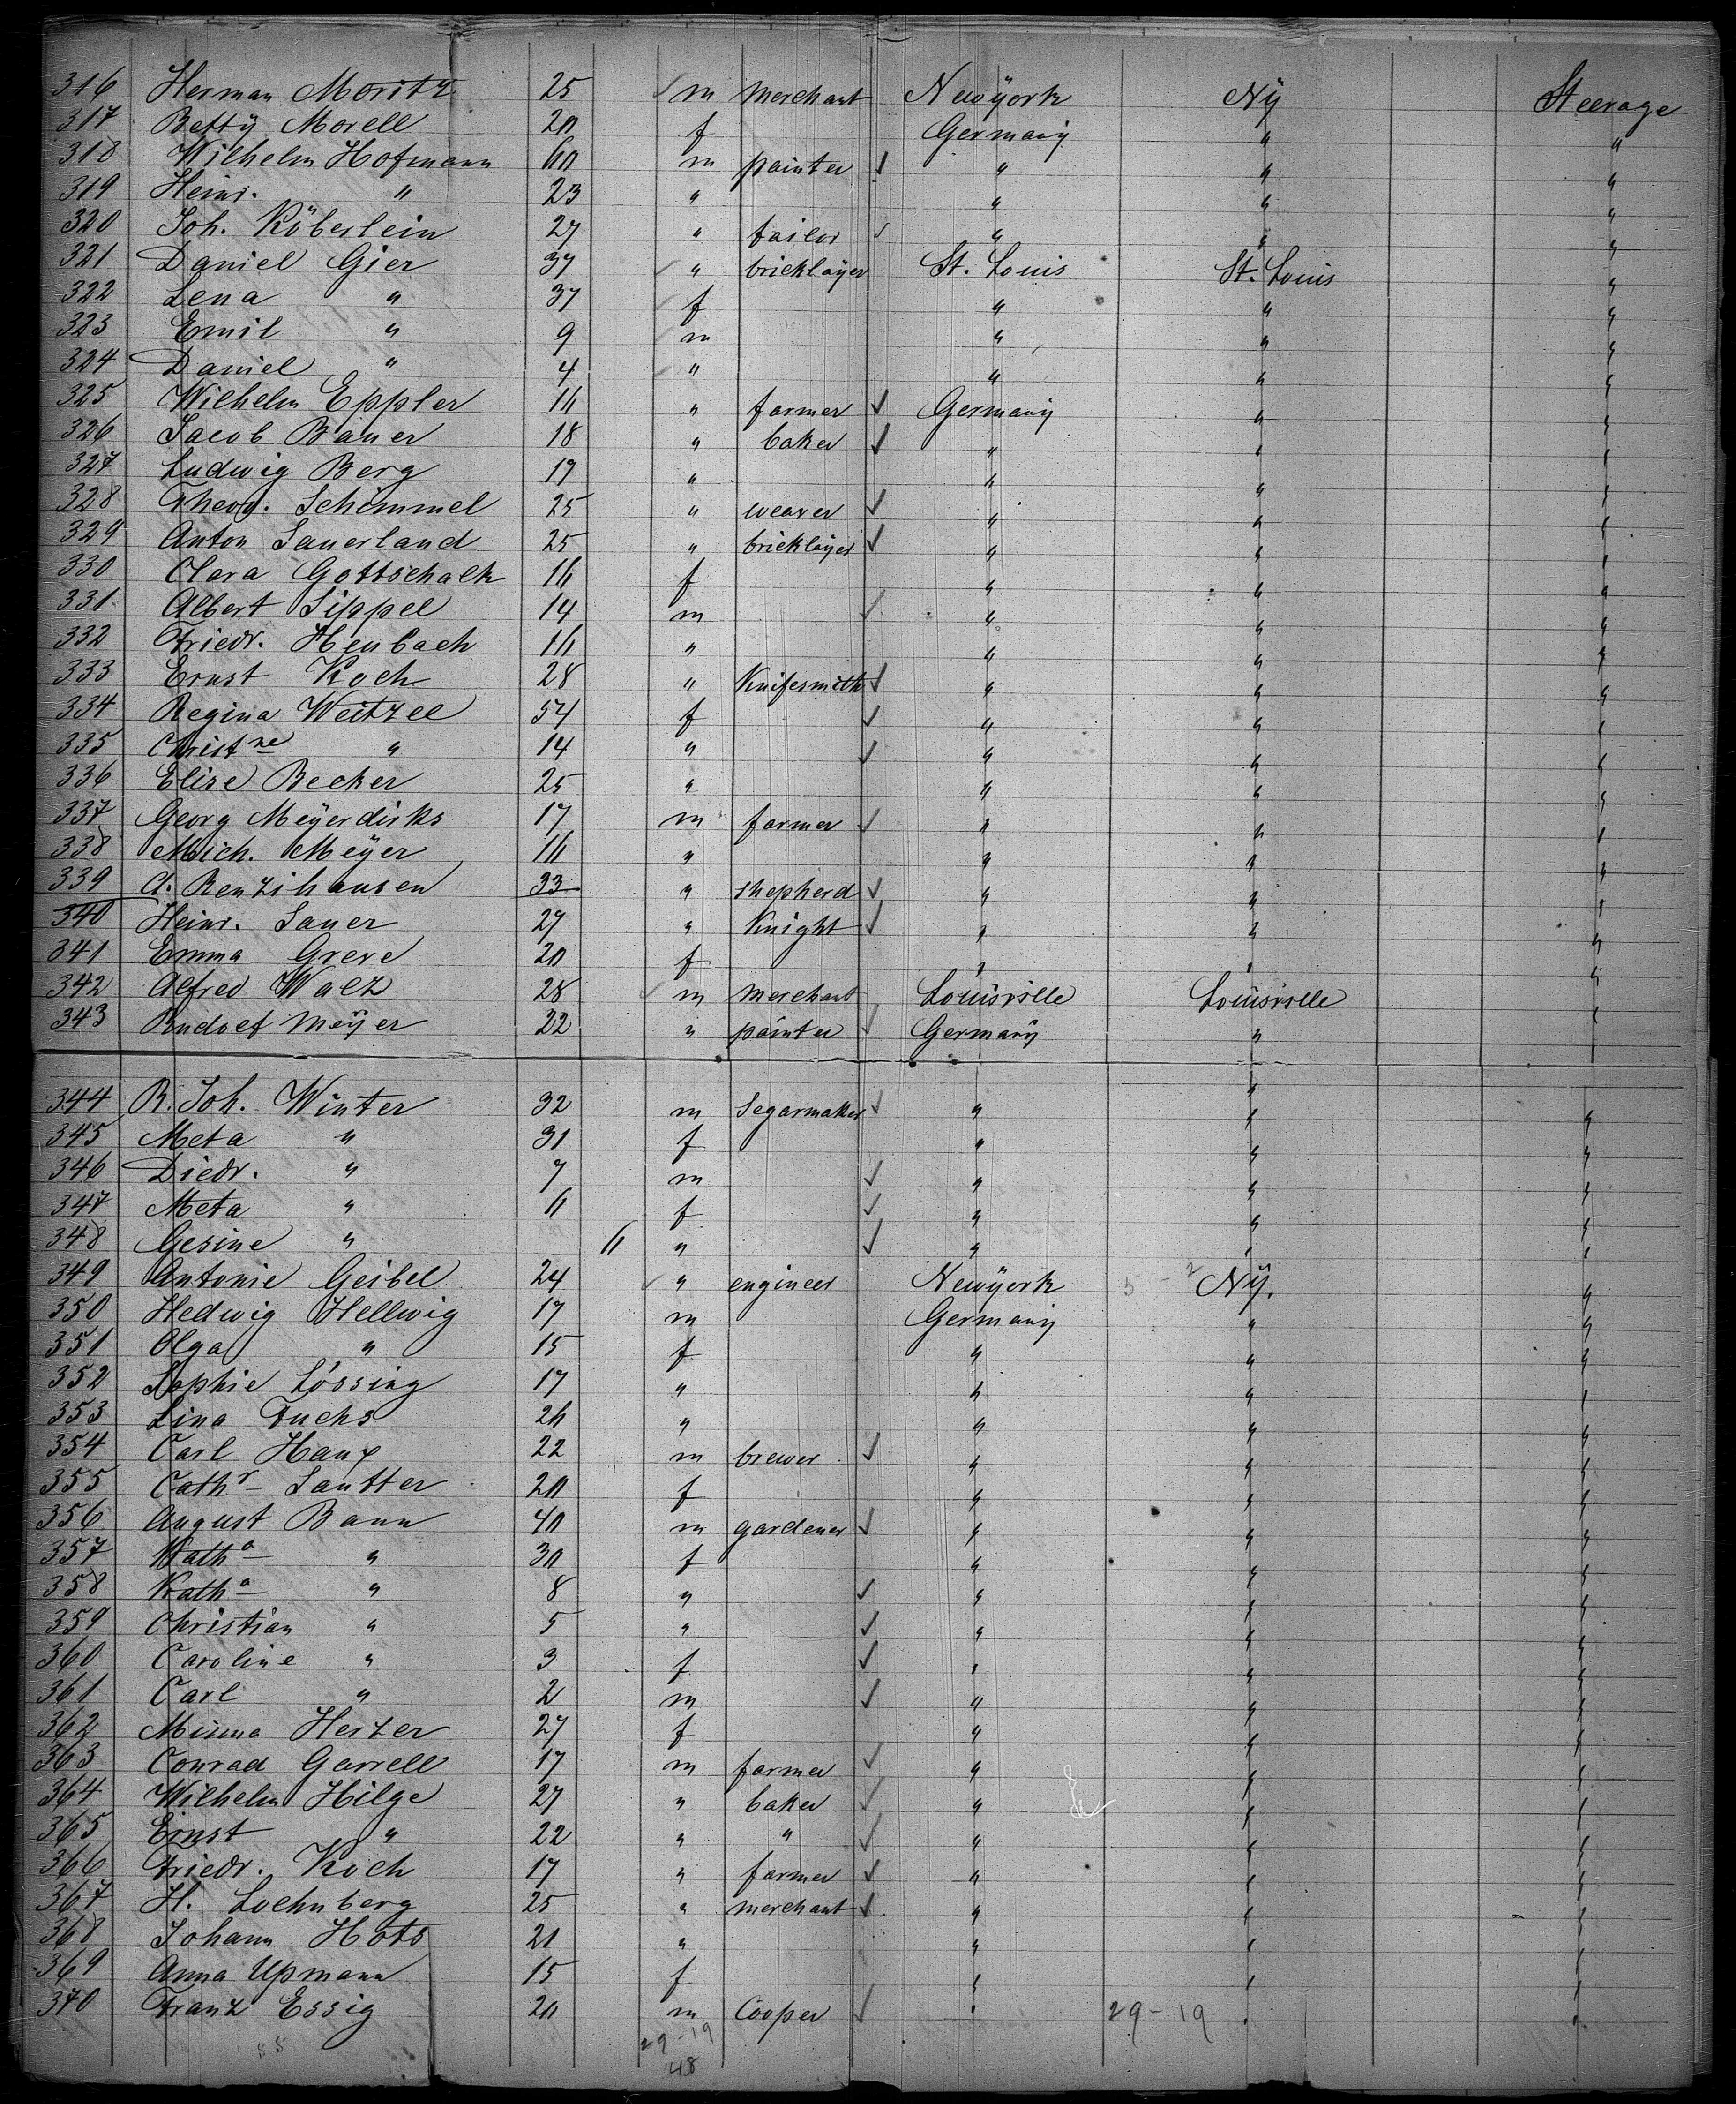 316 Herman Moritz 25 m merchant Newÿork Nÿ Steerage
317 Bettÿ Morell 20 f Germanÿ " "
318 Wilhelm Hofmann 60 m painter " " "
319 Heinr. " 23 " " " "
320 Joh. Köberlein 27 " tailor " " "
321 Daniel Gier 37 " bricklaÿer St. Louis St. Louis "
322 Lena " 37 f " " "
323 Emil " 9 m " " "
324 Daniel " 4 " " " "
325 Wilhelm Eppler 16 " farmer Germanÿ " "
326 Jacob Bauer 18 " baker " " "
327 Ludwig Berg 19 " " " "
328 Theod. Schimmel 25 " weaver " " "
329 Anton Sauerland 25 " bricklaÿer " " "
330 Clara Gottschalk 16 f " " "
331 Albert Sippel 14 m " " "
332 Friedr. Heubach 16 " " " "
333 Ernst Koch 28 " Knifesmith " " "
334 Regina Weitzel 54 f " " "
335 Christne " 14 " " " "
336 Elise Becker 25 " " " "
337 Georg Meÿerdirks 17 m farmer " " "
338 Mich. Meÿer 16 " " " "
339 A. Renzihausen 33 " shepherd " " "
340 Heinr. Sauer 27 " Knight " " "
341 Emma Greve 20 f " " "
342 Alfred Walz 28 m merchant Louisville Louisville "
343 Rudolf Meÿer 22 " painter Germanÿ " "
344 B. Joh. Winter 32 m Segarmaker " " "
345 Meta " 31 f " " "
346 Diedr. " 7 m " " "
347 Meta " 6 f " " "
348 Gesine " 6 " " " "
349 Antonie Geibel 24 " engineer Newÿork 5 - 2 Nÿ. "
350 Hedwig Hellwig 17 m Germanÿ " "
351 Olga " 15 f " " "
352 Sophie Lössing 17 " " " "
353 Lina Fuchs 26 " " " "
354 Carl Haux 22 m brewer " " "
355 Cathr Sautter 20 f " " "
356 August Bann 40 m gardener " " "
357 Katha " 30 f " " "
358 Katha " 8 " " " "
359 Christian " 5 " " " "
360 Caroline " 3 f " " "
361 Carl " 2 m " " "
362 Minna Herzer 27 f " " "
363 Conrad Garrell 17 m farmer " " "
364 Wilhelm Hilge 27 " baker " " "
365 Ernst " 22 " " " " "
366 Friedr. Koch 17 " farmer " " "
367 H. Loehnberg 25 " merchant " " "
368 Johann Hots 21 " " " "
369 Anna Upmann 15 f " " "
370 Franz Essig 20 m Cooper " 29-19 " "
29-19
48